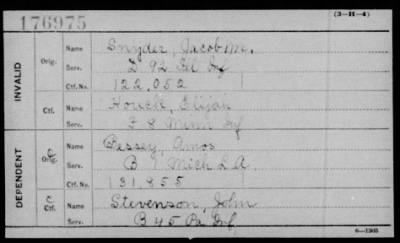 176975
(3-H-4)
INVALID
Orig.
Name Snyder, Jacob M.
Serv. D 92 Ill Inf
Ctf. No. 122,052
Ctf.
Name Howell, Elijah
Serv. F 8 Minn Inf
DEPENDENT
C
Orig.
Name Pessey, Amos
Serv. B 1 Mich L A
Ctf. No. 131,855
C
Ctf.
Name Stevenson, John
Serv. B 45 Pa Inf
6-1305